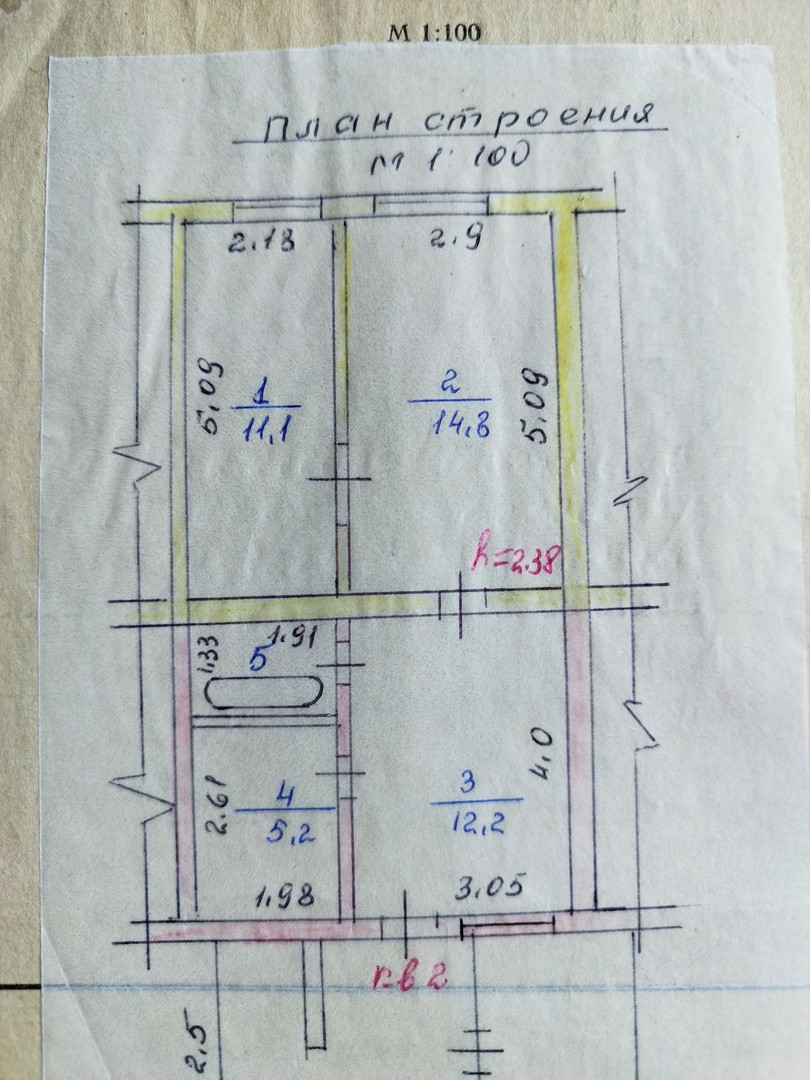 М 1:100
План строения
М 1:100
2.18
2.9
5.09
1
11,1
2
14,8
5.09
h=2.38
1.33
1.91
5
2.61
4
5,2
3
12,2
4.0
1.98
3.05
кв 2
2.5